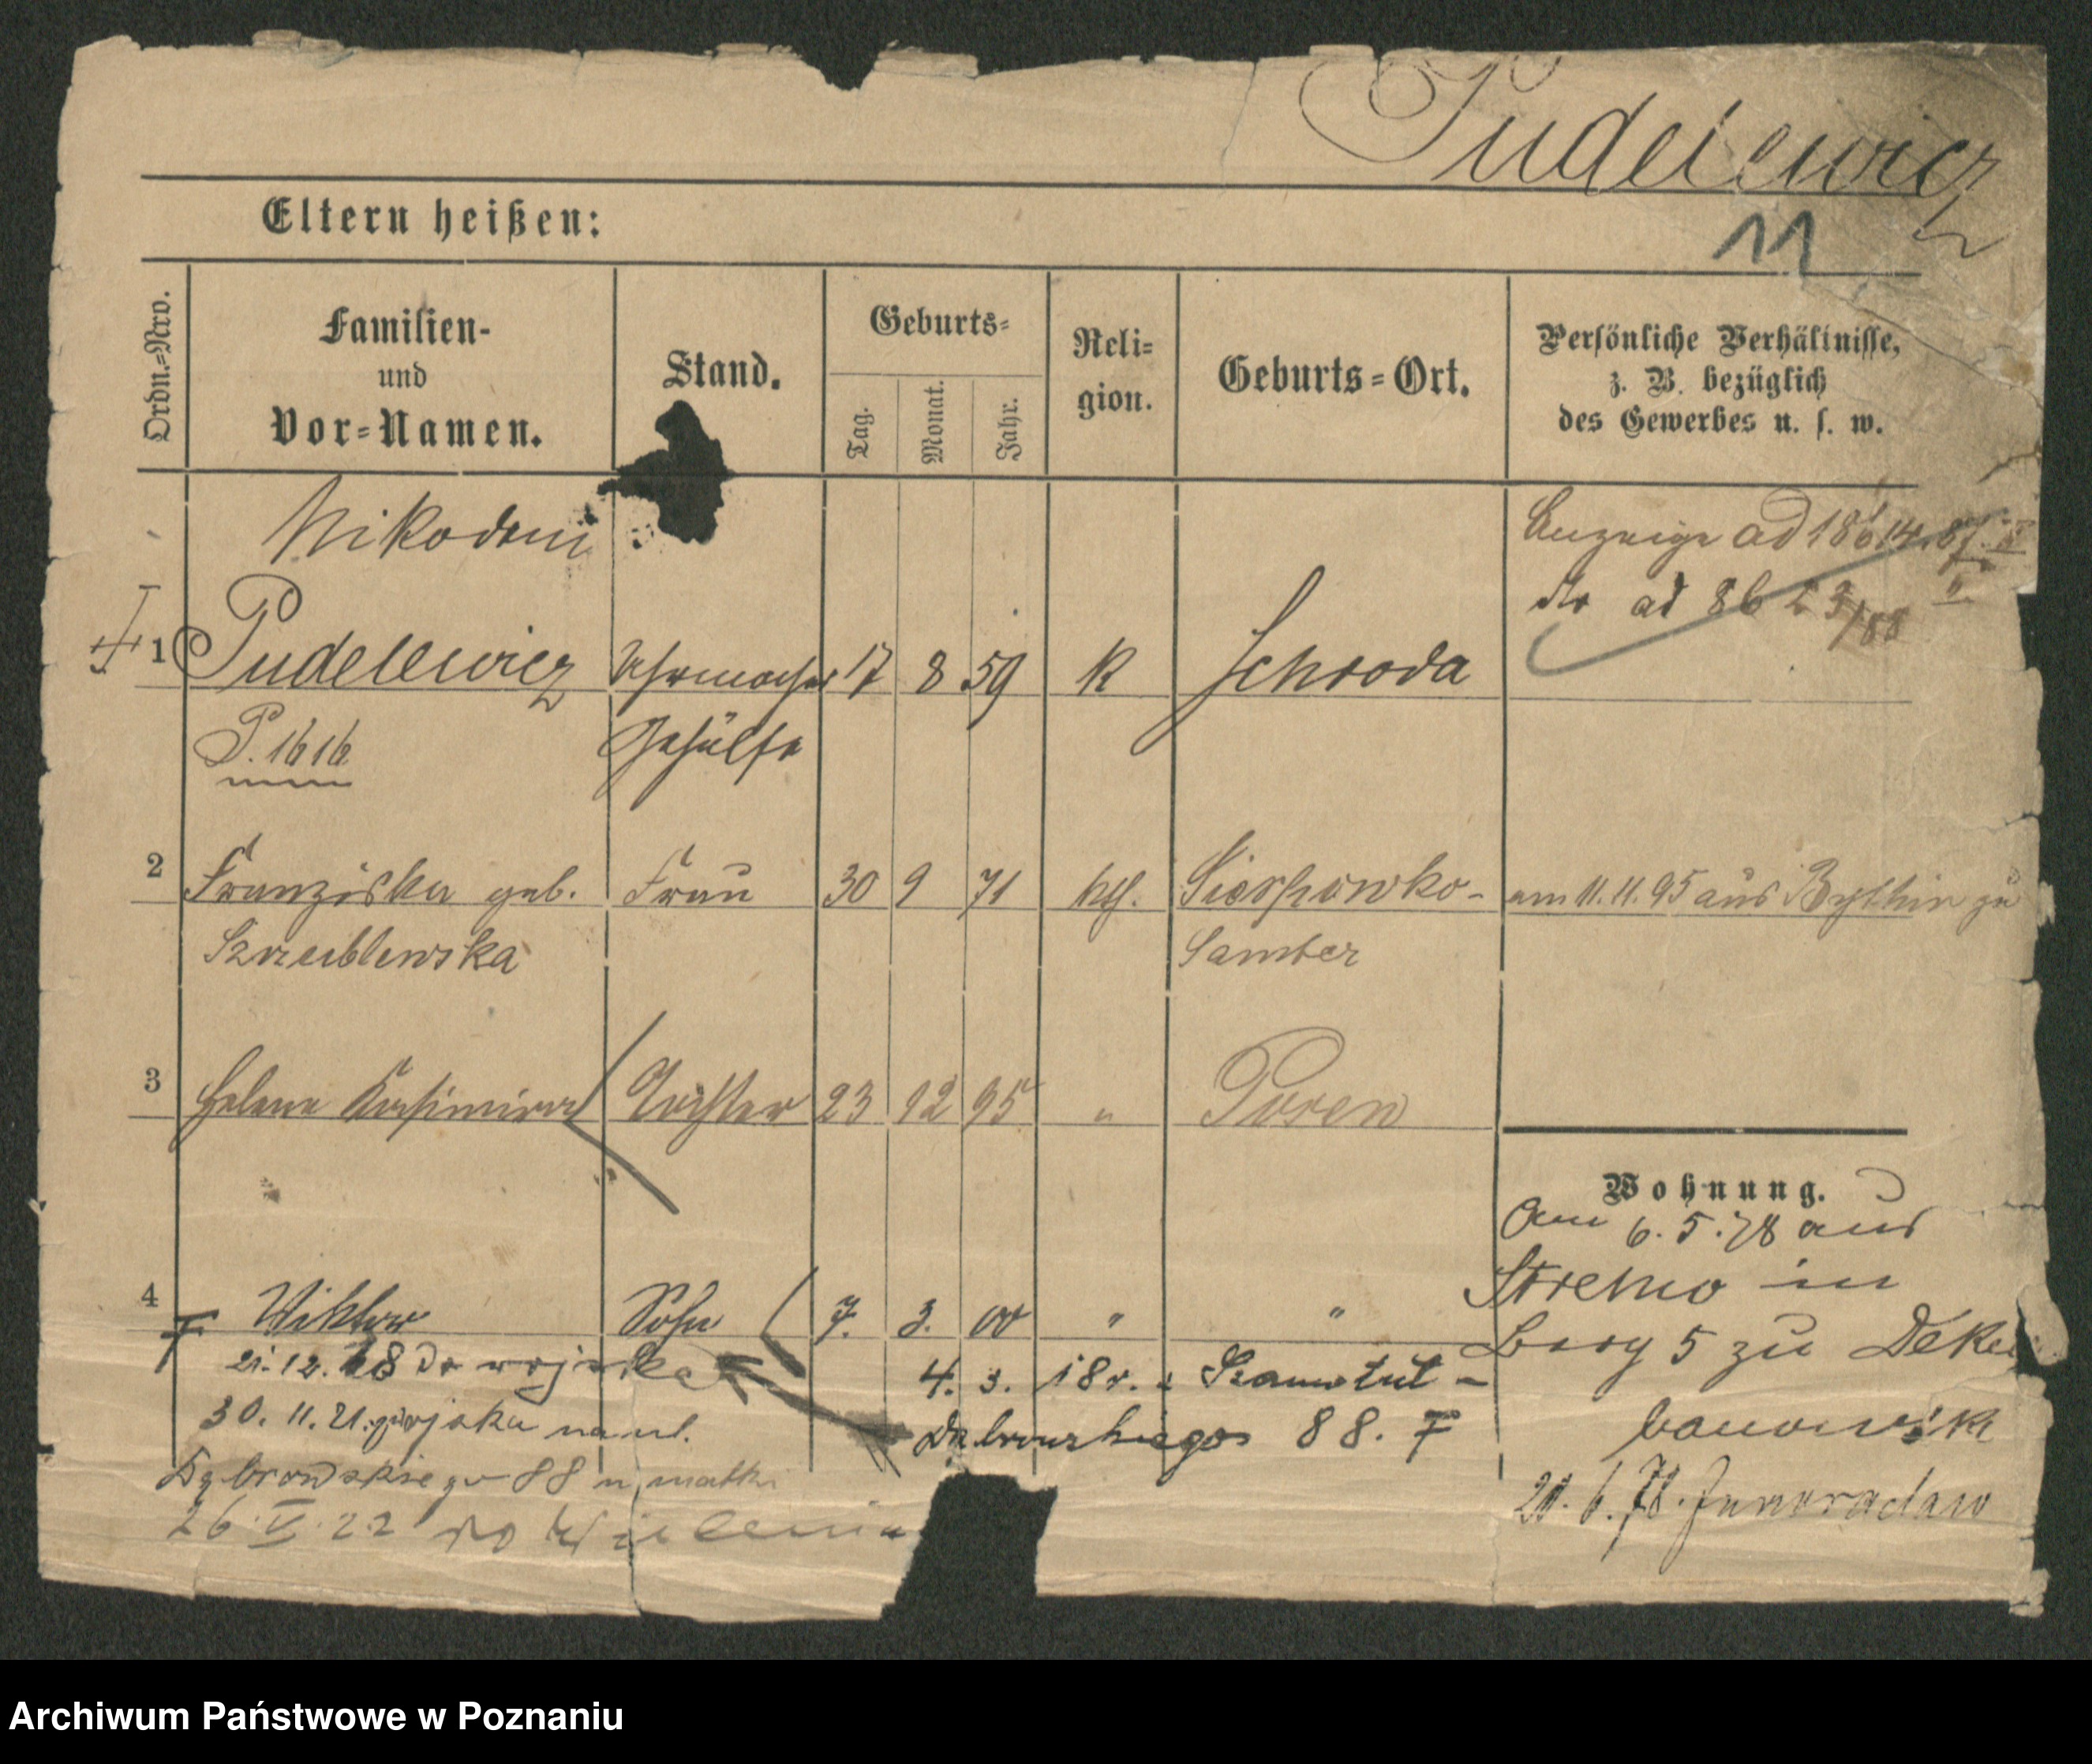 Pudelewicz
Eltern heißen:
11
Ordn.=Nro.
Familien-
und
Vor=Namen.
Stand.
Geburts=
Tag.
Monat.
Jahr.
Reli=
gion.
Geburts=Ort.
Persönliche Verhältnisse,
z. B. bezüglich
des Gewerbes u. s. w.
Nikodem
Anzeige ad
do ad 86
1 Pudelewicz Uhrmacher 17 8 59 K Schroda
P. 1616 Gehülfe
2 Franziska geb. Frau 30 9 71 kth. am 11.11.95 aus Bythin zu
Samter
3 Helena Kasimira Tochter 23 12 95 " Posen
Wohnung.
Am 6.5.78 aus
Strelno in
Berg 5 zu
4 Wiktor Sohn 7. 3. 00 " "
21.12.18 do wojska
4. 3. 18 r. z Szamotuł -
30. 11. 21. z wojska na ul.
Dąbrowskiego 88. F
Dąbrowskiego 88 u matki
26.V.22 do Wielenia
20.6.78. Inowraclaw
Archiwum Państwowe w Poznaniu